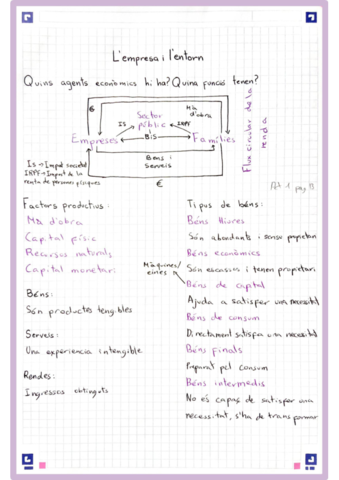 L'empresa i l'entorn
Quins agents econòmics hi ha? Quina funció tenen?
€
Mà d'obra
Sector públic
IS
IRPF
Empreses
B i S
Famílies
Béns i Serveis
€
Flux circular de la renda
IS → Impost societat
IRPF → Impost de la
renta de persones físiques
Act 1 pàg 11
Factors productius:
Mà d'obra
Capital físic
Recursos naturals
Capital monetari
Màquines/
eines
Béns:
Són productes tangibles
Serveis:
Una experiencia intangible
Rendes:
Ingressos obtinguts
Tipus de béns:
Béns lliures
Són abundants i sense propietari
Béns econòmics
Són escassos i tenen propietari
Béns de capital
Ajuda a satisfer una necessitat
Béns de consum
Directament satisfer una necessitat
Béns finals
Preparat pel consum
Béns intermedis
No és capaç de satisfer una
necessitat, s'ha de transformar